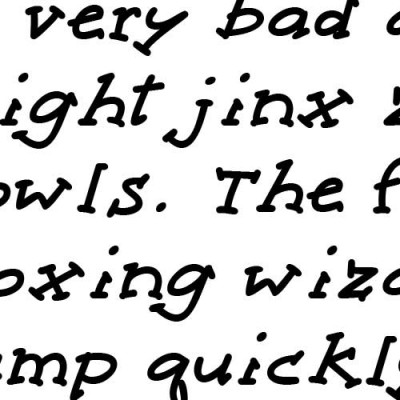 very bad
ight jinx
owls. The f
oxing wiz
mp quickly